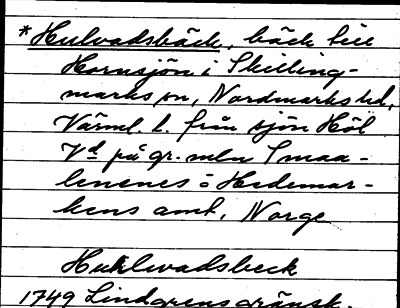 *Hulvadsbäck, bäck till
Hornsjön i Skilling-
marks sn, Nordmarks hd,
Värml. l. från sjön Höl
Vd på gr. mln Smaa-
lenenes o Hedemar-
kens amt, Norge
Huhlwadsbeck
1749 Lindgrens gränsk.